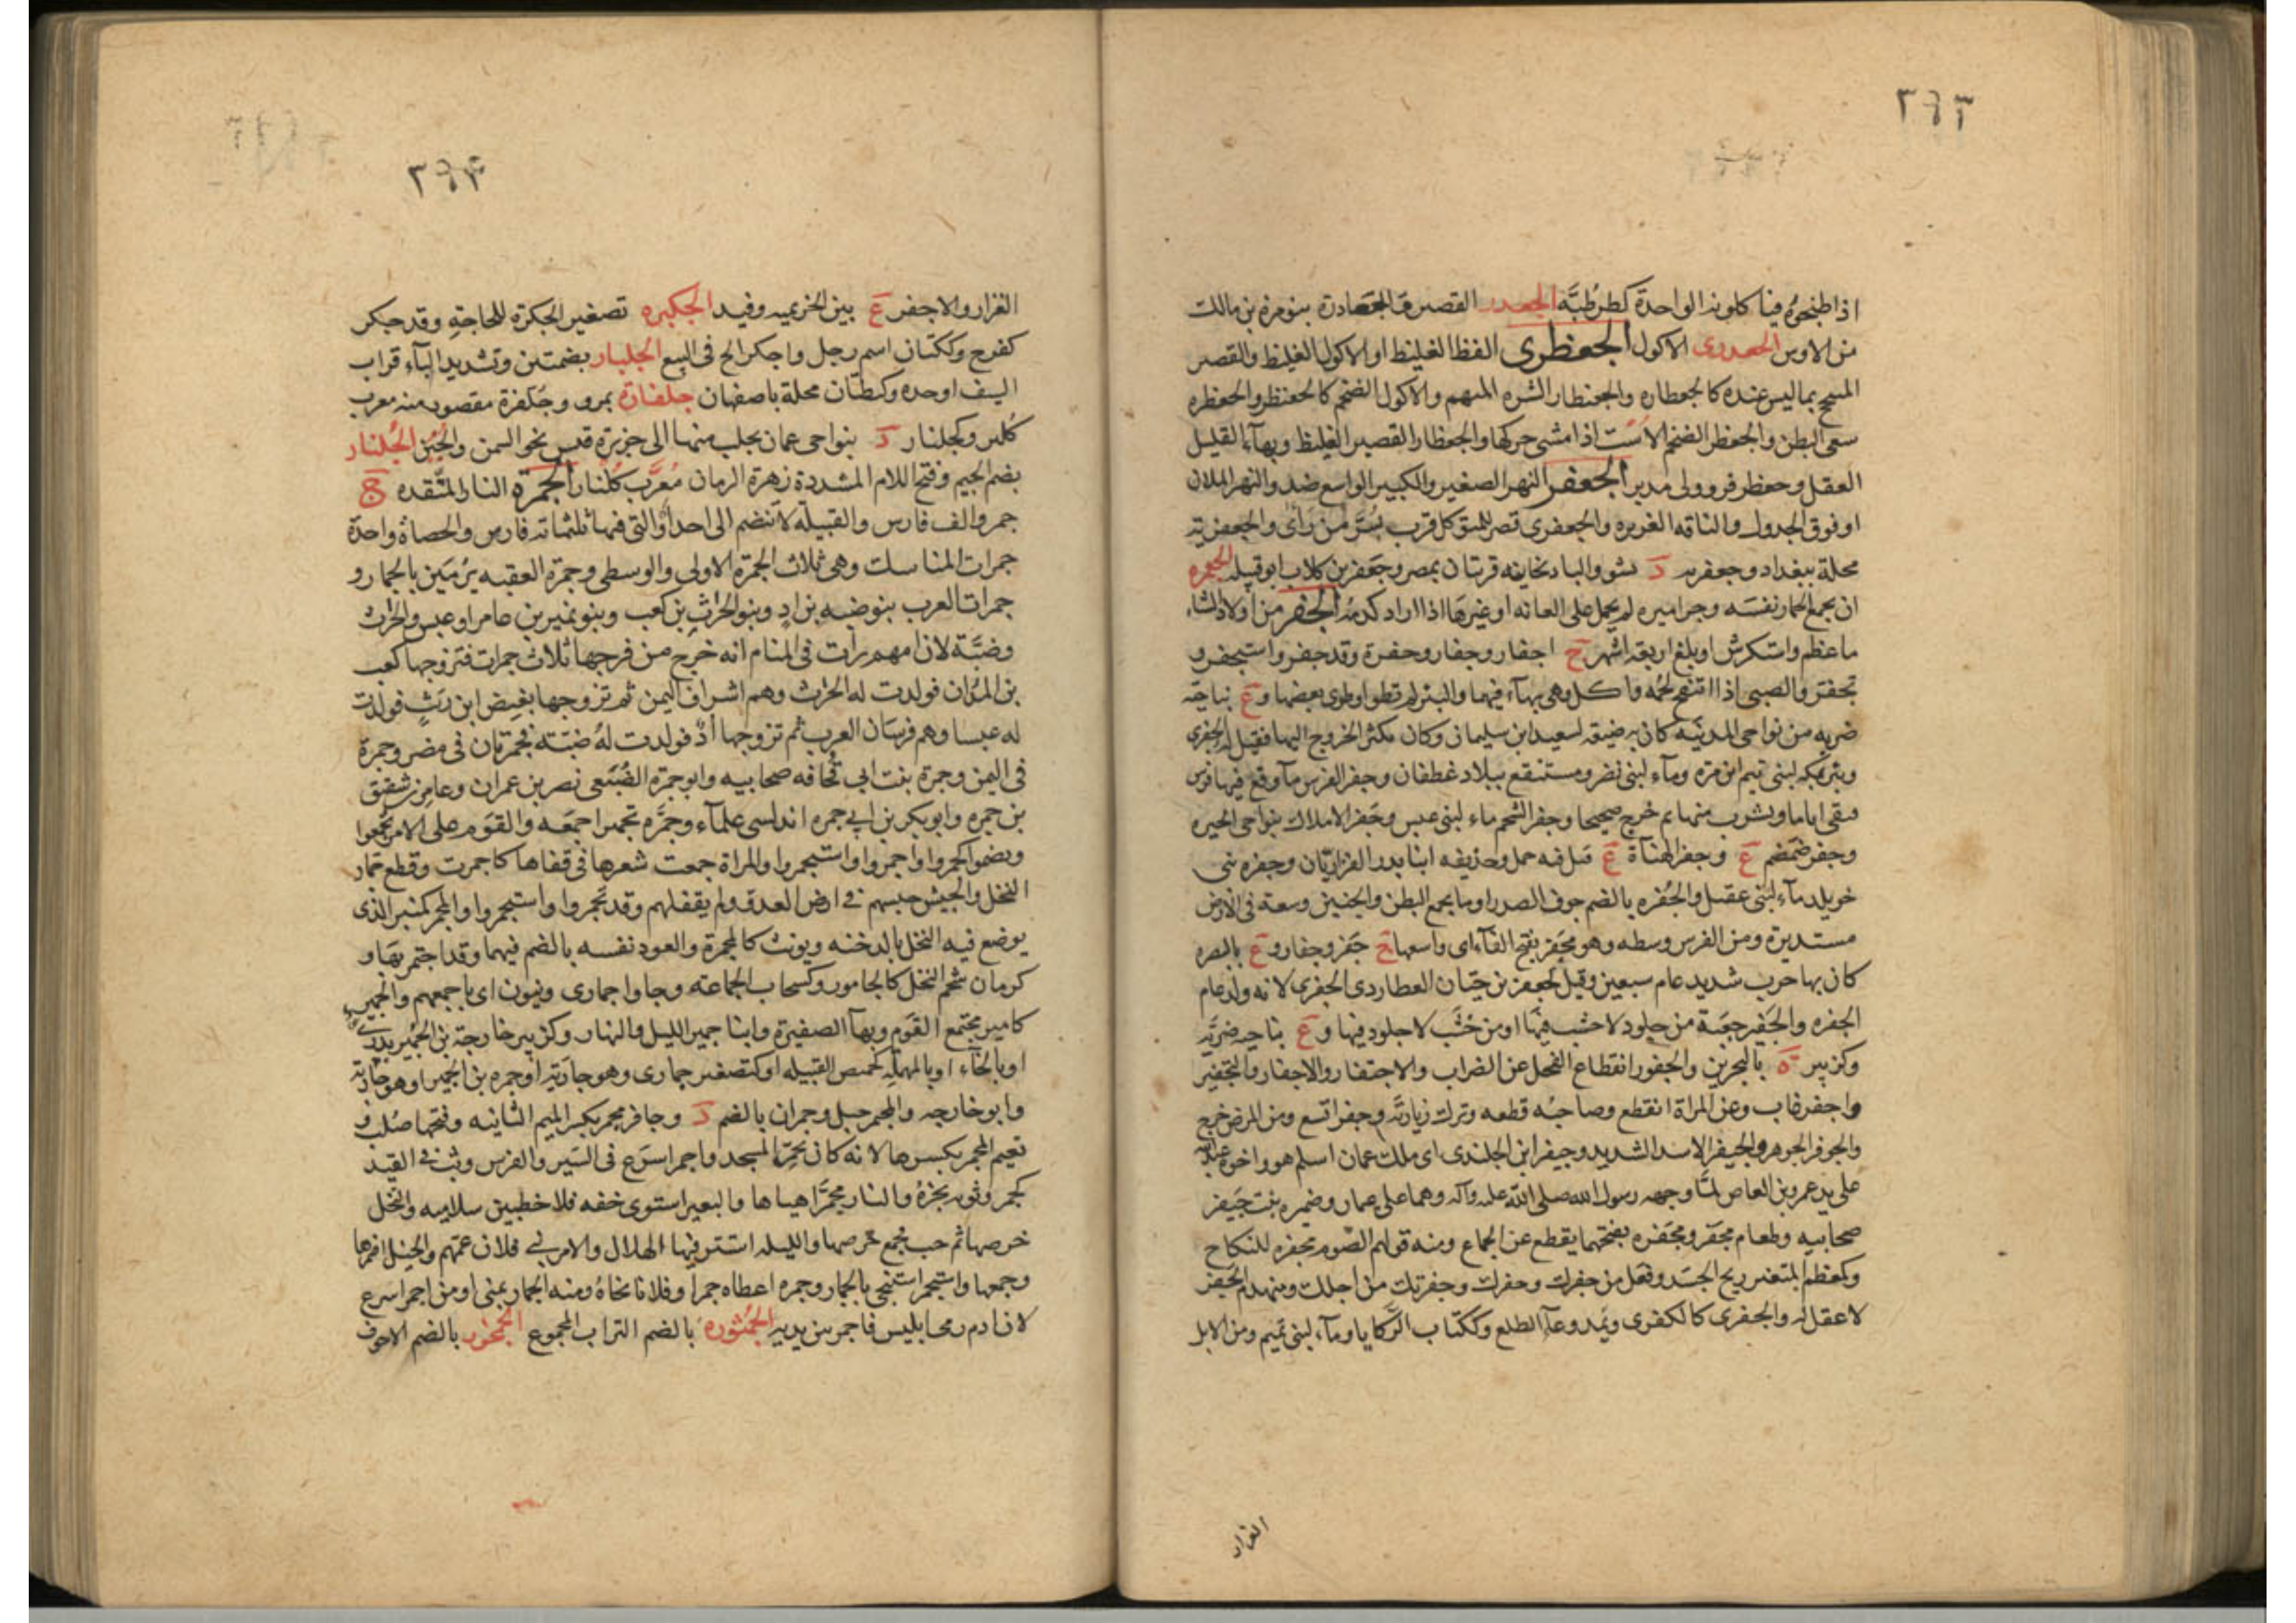 ٢٩٣
اذا طبخوه فينا كلونه الواحدة كطرطبّه الجعدر القصير والجعادرة بنو مرة بن مالك
من الاوس الجعدرى الاكول الجعظرى الفظ الغليظ او الاكول الغليظ والقصير
المسمح بما ليس عنده كالجعظاره والجعنظار الشره المنهم والاكول الضخم كالجعنظر والجعظره
سعى البطن والجعظر الضخم الاست اذا مشى حركها والجعظار القصير الغليظ وبهآء القليل
العقل وجعظر فر وولى مدبرا الجعفر النهر الصغير والكبير الواسع ضد والنهر الملان
او فوق الجدول والناقه الغزيره والجعفرى قصر للمتوكل قرب سُرَّ مَن رَاى والجعفريته
محلة ببغداد وجعفريه د بشو والبادنجانيه قريتان بمصر وجعفر بن كلاب ابو قبيله الجعمره
ان يجمع الحمار نفسه وجراميزه لم يحمل على العانه او غيرها اذا اراد كدمه الجفر من اولاد الشاء
ما عظم واستكرش او بلغ اربعه اشهر ج اجفار وجفار وجفرة وقد جفر واستجفر و
تجفر والصبى اذا انتفخ لحمه واكل وهى بهآء فيهما والبئر لم تطو او طوى بعضها و ع بناحيه
ضريه من نواحى المدينه كان به ضيعة لسعيد ابن سليمان وكان يكثر الخروج اليها فقيل له الجفرى
وبئر بمكه لبنى تيم ابن مره ومآء لبنى نضر ومستنقع ببلاد غطفان وجفر الفرس مآ وقع فيها فرس
فبقى اياما ويشرب منها ثم خرج صحيحا وجفر الشحم ماء لبنى عبس وجفر الاملاك بنواحى الحيره
وجفر ضمضم ع وجفر الهبآة ع قتل فيه حمل وحذيفه ابنا بدر الفزاريّان وجفره بنى
خويلد مآء لبنى عقيل والجُفره بالضم جوف الصدر او ما يجمع البطن والجنبين وسعة فى الارض
مستديرة ومن الفرس وسطه وهو مُجفَر بفتح الفآء اى واسعها ج جفر وجفار و ع بالبصره
كان بها حرب شديد عام سبعين وقيل لجعفر بن حيّان العطاردى الجفرى لانه ولد عام
الجفره والجَفير جعبة من جلود لا خشب فيها او من خشب لا جلود فيها و ع بناحيه ضريّه
وكزبير ة بالبحرين والجفور انقطاع الفحل عن الضراب والاجتفار والاجفار والتجفير
واجفر غاب وعن المراة انقطع وصاحبه قطعه وترك زيارته وجفر اتسع ومن المرض خرج
والجوفر الجوهر والجيفر الاسد الشديد وجيفر ابن الجلندى اى ملك عمان اسلم هو واخوه عبد الله
على يد عمرو بن العاص لمّا وجهه رسول الله صلى الله عليه وآله وهما على عمان وضميره بنت جَيفر
صحابيه وطعام مجفر ومجفره بفتحهما يقطع عن الجماع ومنه قولهم الصوم مجفره للنكاح
وكمعظم المتغير ريح الجسد وفعل من جفرك وجفرك وجفرتك من اجلك ومنهدم الجفر
لا عقل له والجفرى كالكفرى ويمد وعآ الطلع وككتاب الركايا ومآء لبنى تميم ومن الابل
الغزار
٢٩٤
الغزار والاجفر ع بين الخزيميه وفيد الجكيره تصغير الجكرة للحاجة وقد جكر
كفرح وككتان اسم رجل واجكر الح فى البيع الجلبار بضمتين وتشديد البآء قراب
السيف او حده وكبطنان محلة باصفهان جلفارة بمرو وجُلفرة مقصور منه معرب
كلبر وكجلنار د بنواحى عمان يجلب منها الى جزيرة قيس نحو السمن والجُبن الجُلنار
بضم الجيم وفتح اللام المشددة زهرة الرمان مُعرَّب كُلنار الجَمرة النار المتّقده ج
جمر والف فارس والقبيلة لا تنضم الى احد او التى فيها ثلثمائه فارس والحصاة واحدة
جمرات المناسك وهى ثلاث الجمرة الاولى والوسطى وجمرة العقبه يرمَين بالجمار و
جمرات العرب بنو ضبه بن ادٍ وبنو الحرث بن كعب وبنو نمير بن عامر او عبس والحرث
وضبّة لان امهم رات فى المنام انه خرج من فرجها ثلاث جمرات فتزوجها كعب
بن المدان فولدت له الحرث وهم اشراف اليمن ثم تزوجها بغيض ابن ريث فولدت
له عبسا وهم فرسان العرب ثم تزوجها ادّ فولدت له ضبّة فجمرتان فى مضر وجمرة
فى اليمن وجمرة بنت ابى قحافه صحابيه وابو جمرة الضُبَعى نصر بن عمران وعامر بن شقيق
بن جمره وابو بكر بن ابى جمره اندلسى علمآء وجمّره تجميرا جمعه والقوم على الامر تجمعوا
وبضموا كجمروا واجمروا واستجمروا والمراة جمعت شعرها فى قفاها كاجمرت وقطع جمار
النخل والجيش حبسهم فى ارض العدو ولم يقفلهم وقد تجمروا واستجمروا والمجمر كمنبر الذى
يوضع فيه النخل بالدخنه ويونث كالمجمرة والعود نفسه بالضم فيهما وقد اجتمر بها و
كرمان شحم النخل كالجامور وكسحاب الجماعه وجاوا جمارى وينون اى باجمعهم والجمير
كامير مجتمع القوم وبهآ الصفيرة وابنا جمير الليل والنهار وكزبير خارجة بن الجُمير بدرى
او بالخآء او بالمهمله كحميص القبيله او كتصغير جمارى وهو جارية او جمره بن الجمير او هو جارية
وابو خارجه والمجيمر جبل وجمران بالضم د وحافر مجمر بكسر الميم الثانيه وفتحها صُلب و
نعيم المجمر بكسرها لانه كان يجمّر المسجد واجمر اسرع فى السَير والفرس وثب فى القيد
كجمر وثوبه بخره والنار مجمّرا هياها والبعير استوى خفه فلا خط بين سلاميه والنخل
خرصها ثم حسب فجمع خرصها والليله استتر فيها الهلال والامر بنى فلان عمهم والخيل اضمرها
وجمعها واستجمر استنجى بالجمار وجمره اعطاه جمرا وفلانا نحاه ومنه الجمار بمنى او من اجمر اسرع
لان ادم رمى ابليس فاجمر بين يديه الجُمثوره بالضم التراب المجموع الجمخور بالضم الاجوف